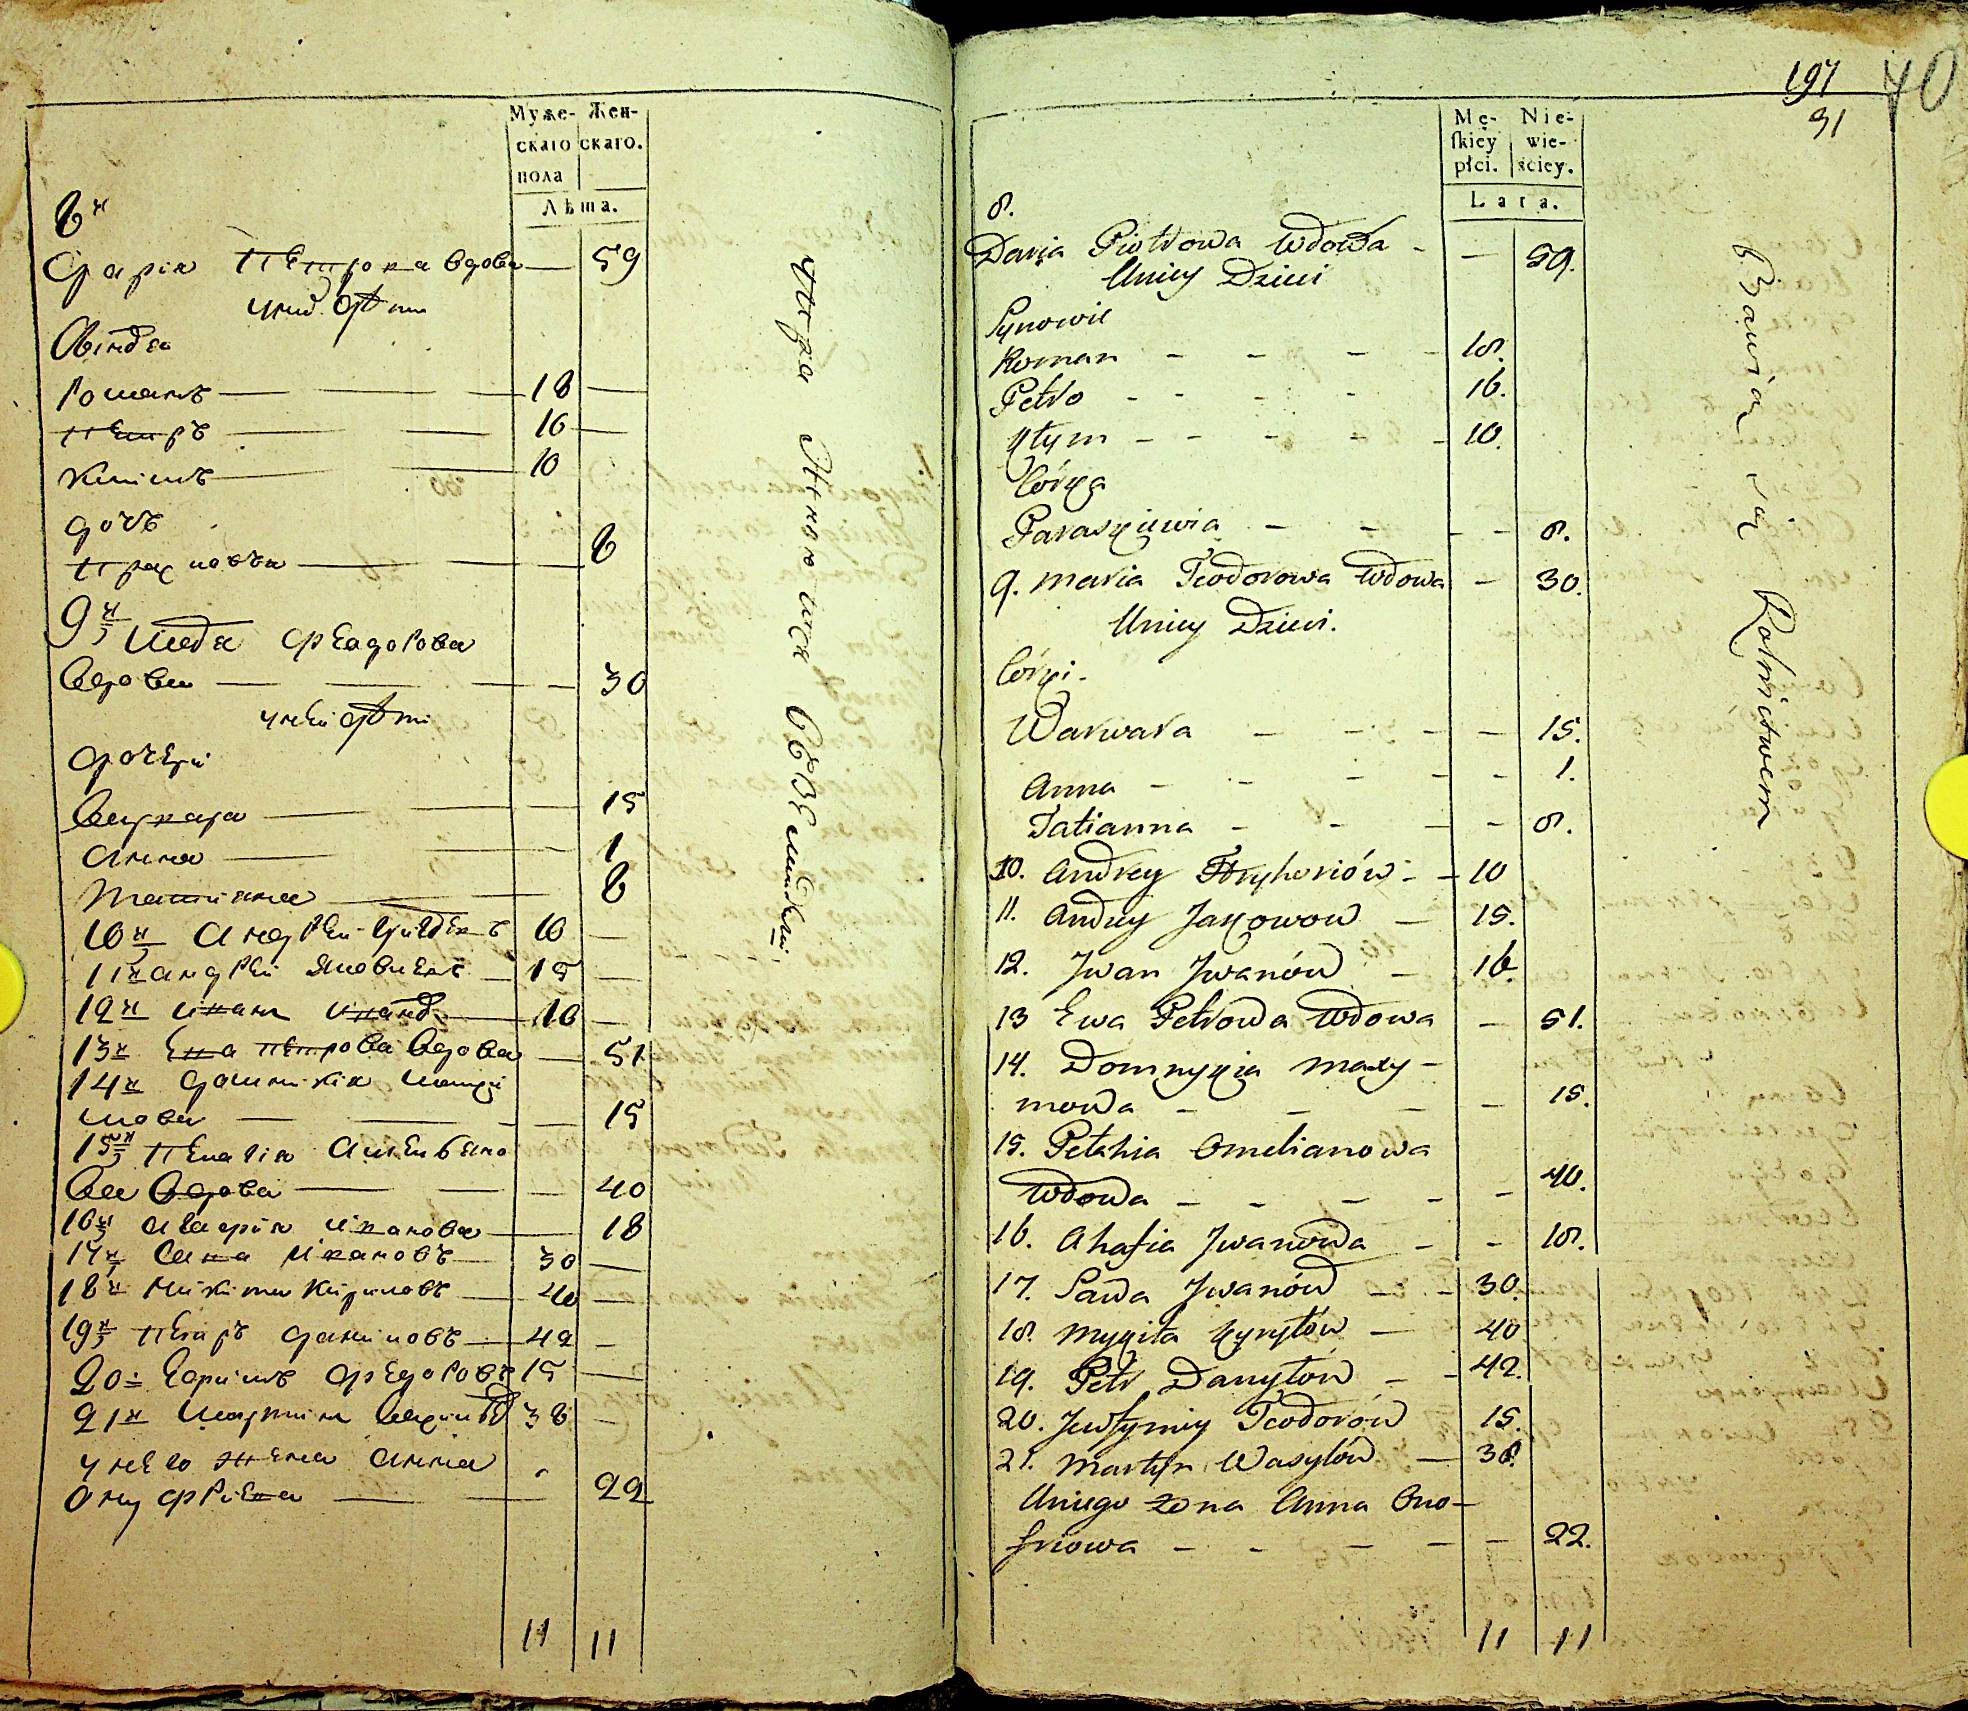 Муже- Жен-
скаго скаго.
пола
Лѣта.
8я
Дарія Петрова вдова — 59
у ней дѣти
Романъ — 18 —
Петръ — 16 —
10
дочь
8
9я
Ѳеадорова
вдова — 30
у ней дѣти
дочери
15
Анна — 1
Татіяна — 8
10я Андрей 10 —
11я Андрей 15 —
12я Иванъ Ивановъ 16 —
13я Ева Петрова вдова — 51
14я Домникія Макси
мова — 15
15я Пелагія Амельяно
ва вдова — 40
16я Агафія Иванова — 18
17я Сава Ивановъ 30 —
18я Микита Кириловъ 40 —
19я Петръ Даниловъ 42 —
20я Ефимъ Ѳедоровъ 15 —
21я Мартинъ 38 —
у него жена Анна
Онуфріева — 22
11 11
197
40
31
Mę- Nie-
skiey wie-
płci. ściey.
Lata.
8.
Daria Piotrowa Wdowa - — 59.
Uniey Dzieci
Synowie
Roman - - - - 18.
Petro - - - - 16.
10.
Córka
Paraskiewia - - - - 8.
9. Maria Teodorowa Wdowa - 30.
Uniey Dzieci.
Córki.
Warwara - - - - 15.
Anna - - - - - 1.
Tatianna - - - - 8.
10. Andrey Hryhoriów - - 10
11. Andrey Jakowow — 15.
12. Jwan Jwanów - 16
13 Ewa Petrowa Wdowa - 51.
14. Domnykia Maxy-
mowa - - - - 15.
15. Pelahia Omelianowa
Wdowa - - - - - 40.
16. Ahafia Jwanowa - - 18.
17. Sawa Jwanów - - 30.
18. Mykita Kyryłów — 40
19. Petr Danyłów - - 42.
20. Jewfymiy Teodorów 15.
21. Martyn Wasylów — 38.
Uniego żona Anna Ono-
friowa - - - - - 22.
11 11
Bawią się Rolnictwem